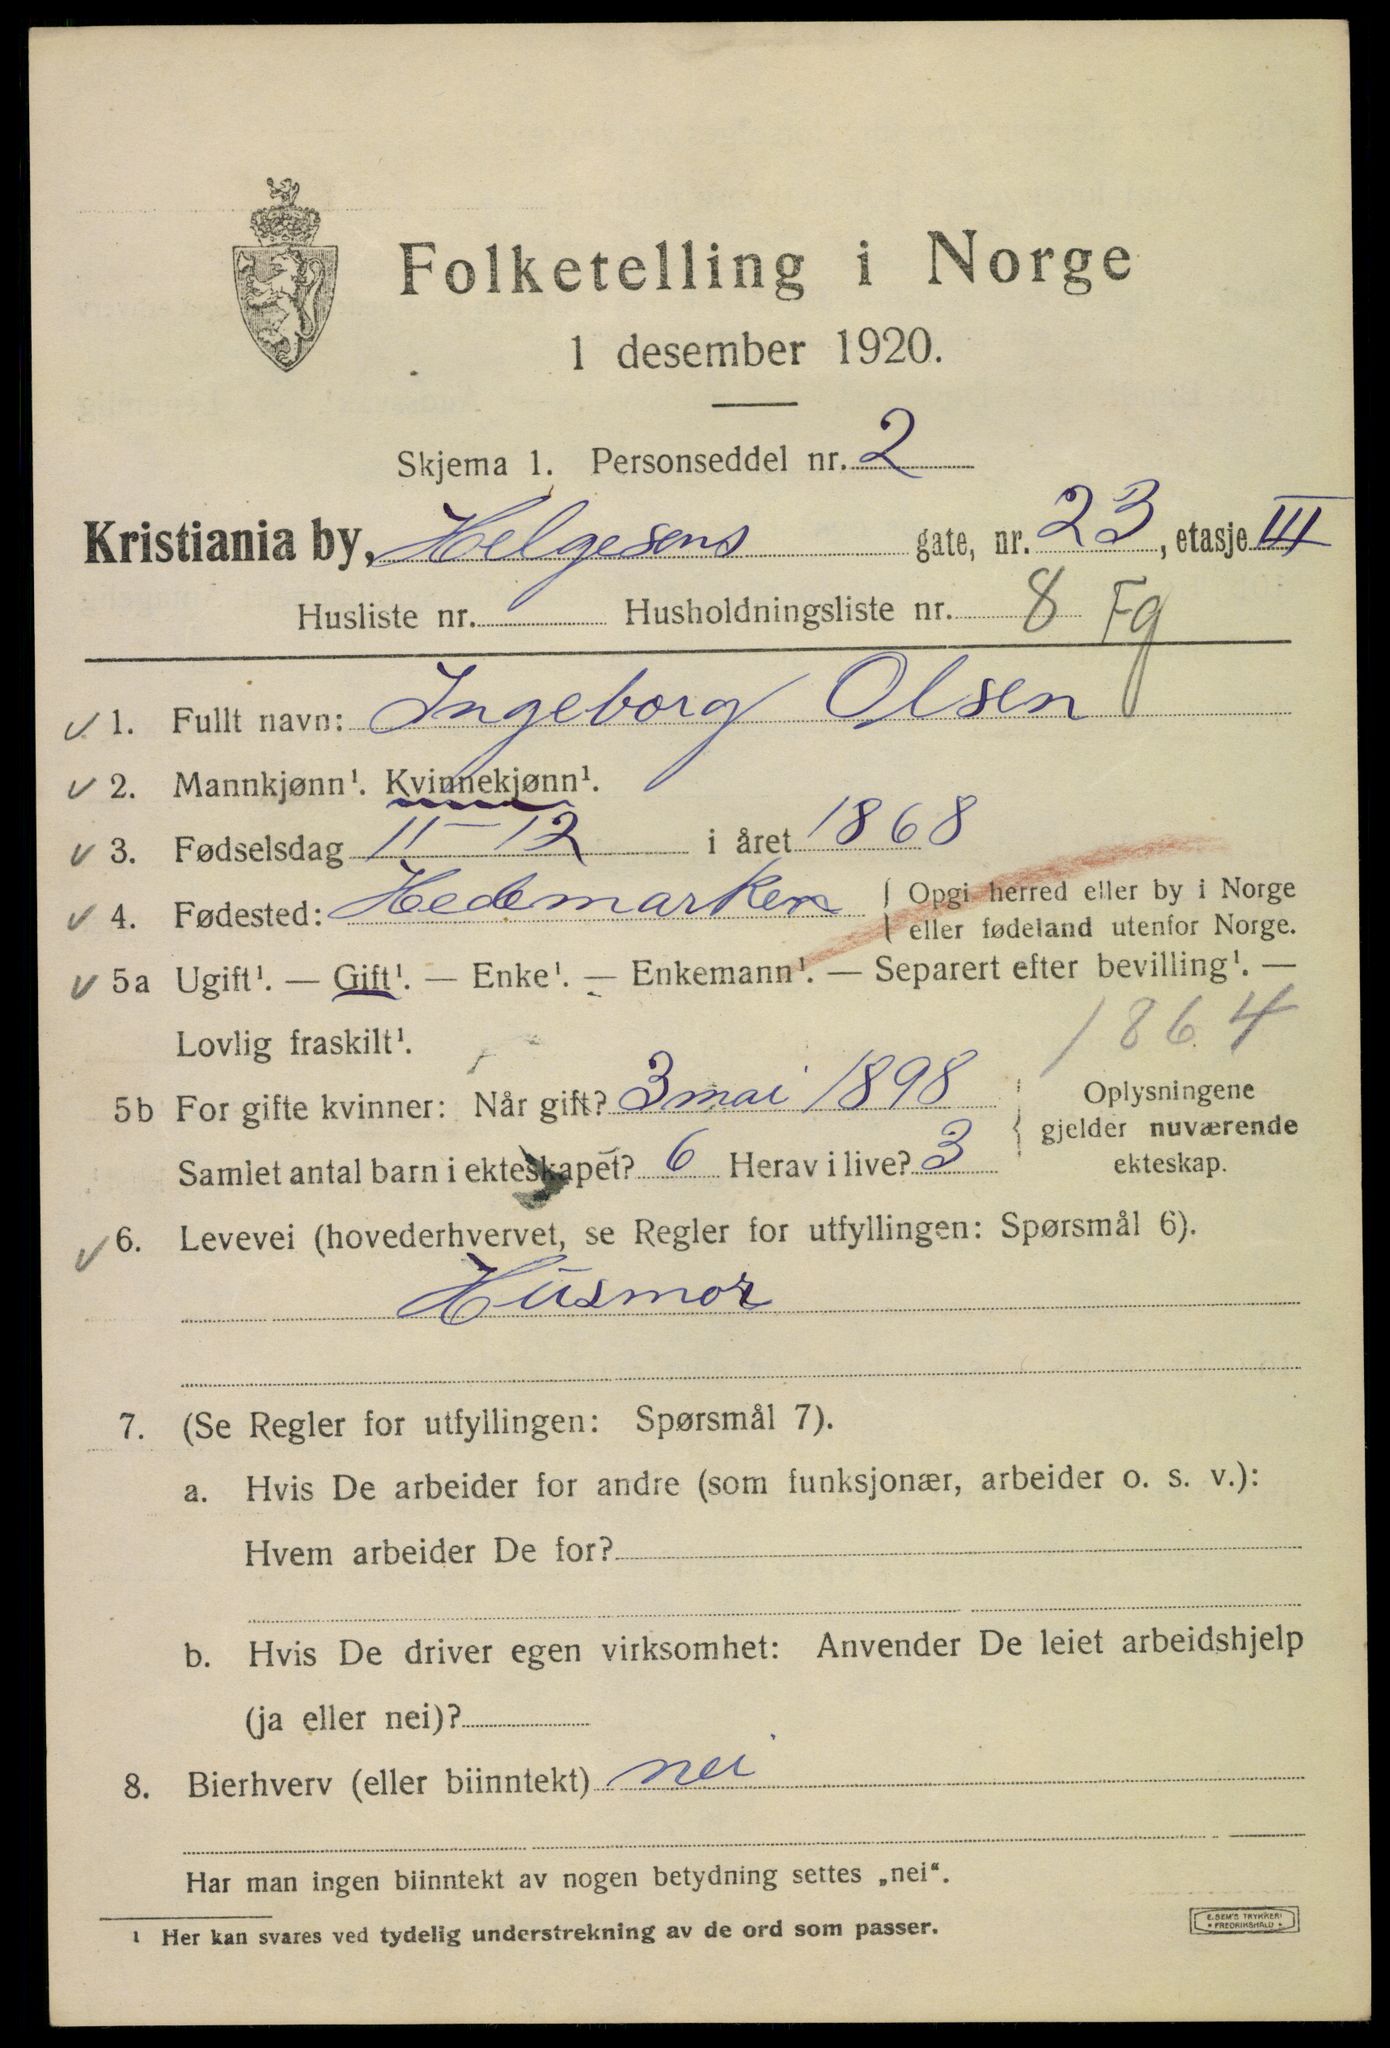 Folketelling i Norge
1 desember 1920.
Skjema 1. Personseddel nr. 2
Kristiania by, Helgesens gate, nr. 23, etasje III
Husliste nr. Husholdningsliste nr. 8 Fg
✓ 1. Fullt navn: Ingeborg Olsen
✓ 2. Mannkjønn¹. Kvinnekjønn¹.
✓ 3. Fødselsdag 11-12 i året 1868
✓ 4. Fødested: Hedemarken { Opgi herred eller by i Norge
eller fødeland utenfor Norge.
✓ 5a Ugift¹. — Gift¹. — Enke¹. — Enkemann¹. — Separert efter bevilling¹. —
Lovlig fraskilt¹. 1864
5b For gifte kvinner: Når gift? 3 mai 1898 { Oplysningene
gjelder nuværende
Samlet antal barn i ekteskapet? 6 Herav i live? 3 ekteskap.
✓ 6. Levevei (hovederhvervet, se Regler for utfyllingen: Spørsmål 6).
Husmor
7. (Se Regler for utfyllingen: Spørsmål 7).
a. Hvis De arbeider for andre (som funksjonær, arbeider o. s. v.):
Hvem arbeider De for?
b. Hvis De driver egen virksomhet: Anvender De leiet arbeidshjelp
(ja eller nei)?
8. Bierhverv (eller biinntekt) nei
Har man ingen biinntekt av nogen betydning settes „nei“.
¹ Her kan svares ved tydelig understrekning av de ord som passer.
E. SEM'S TRYKKERI
* FREDRIKSHALD *